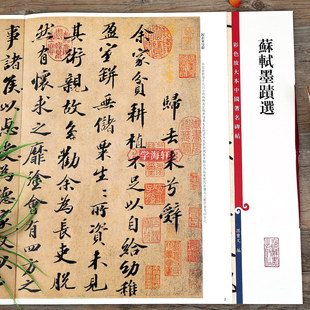 蘇軾墨蹟選
彩色放大本中國著名碑帖
孫寶文 編
歸去來兮辭
余家貧耕植不足以自給幼稚
盈室缾無儲粟生〻所資未見
其術親故多勸余為長吏脫
然有懷求之靡塗會有四方之
事諸侯以惠愛為德家叔以
学海轩